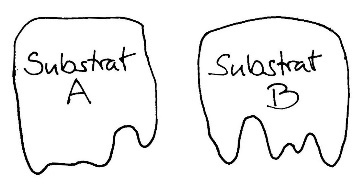 Substrat
A
Substrat
B